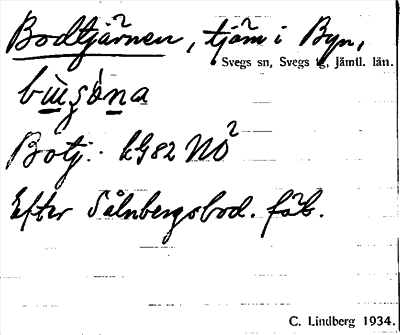 Bodtjärnen, tjärn i Byn,
Svegs sn, Svegs tg, Jämtl. län.
Botj. LG82 NO2
Efter Sålnbergsbod. fäb.
C. Lindberg 1934.